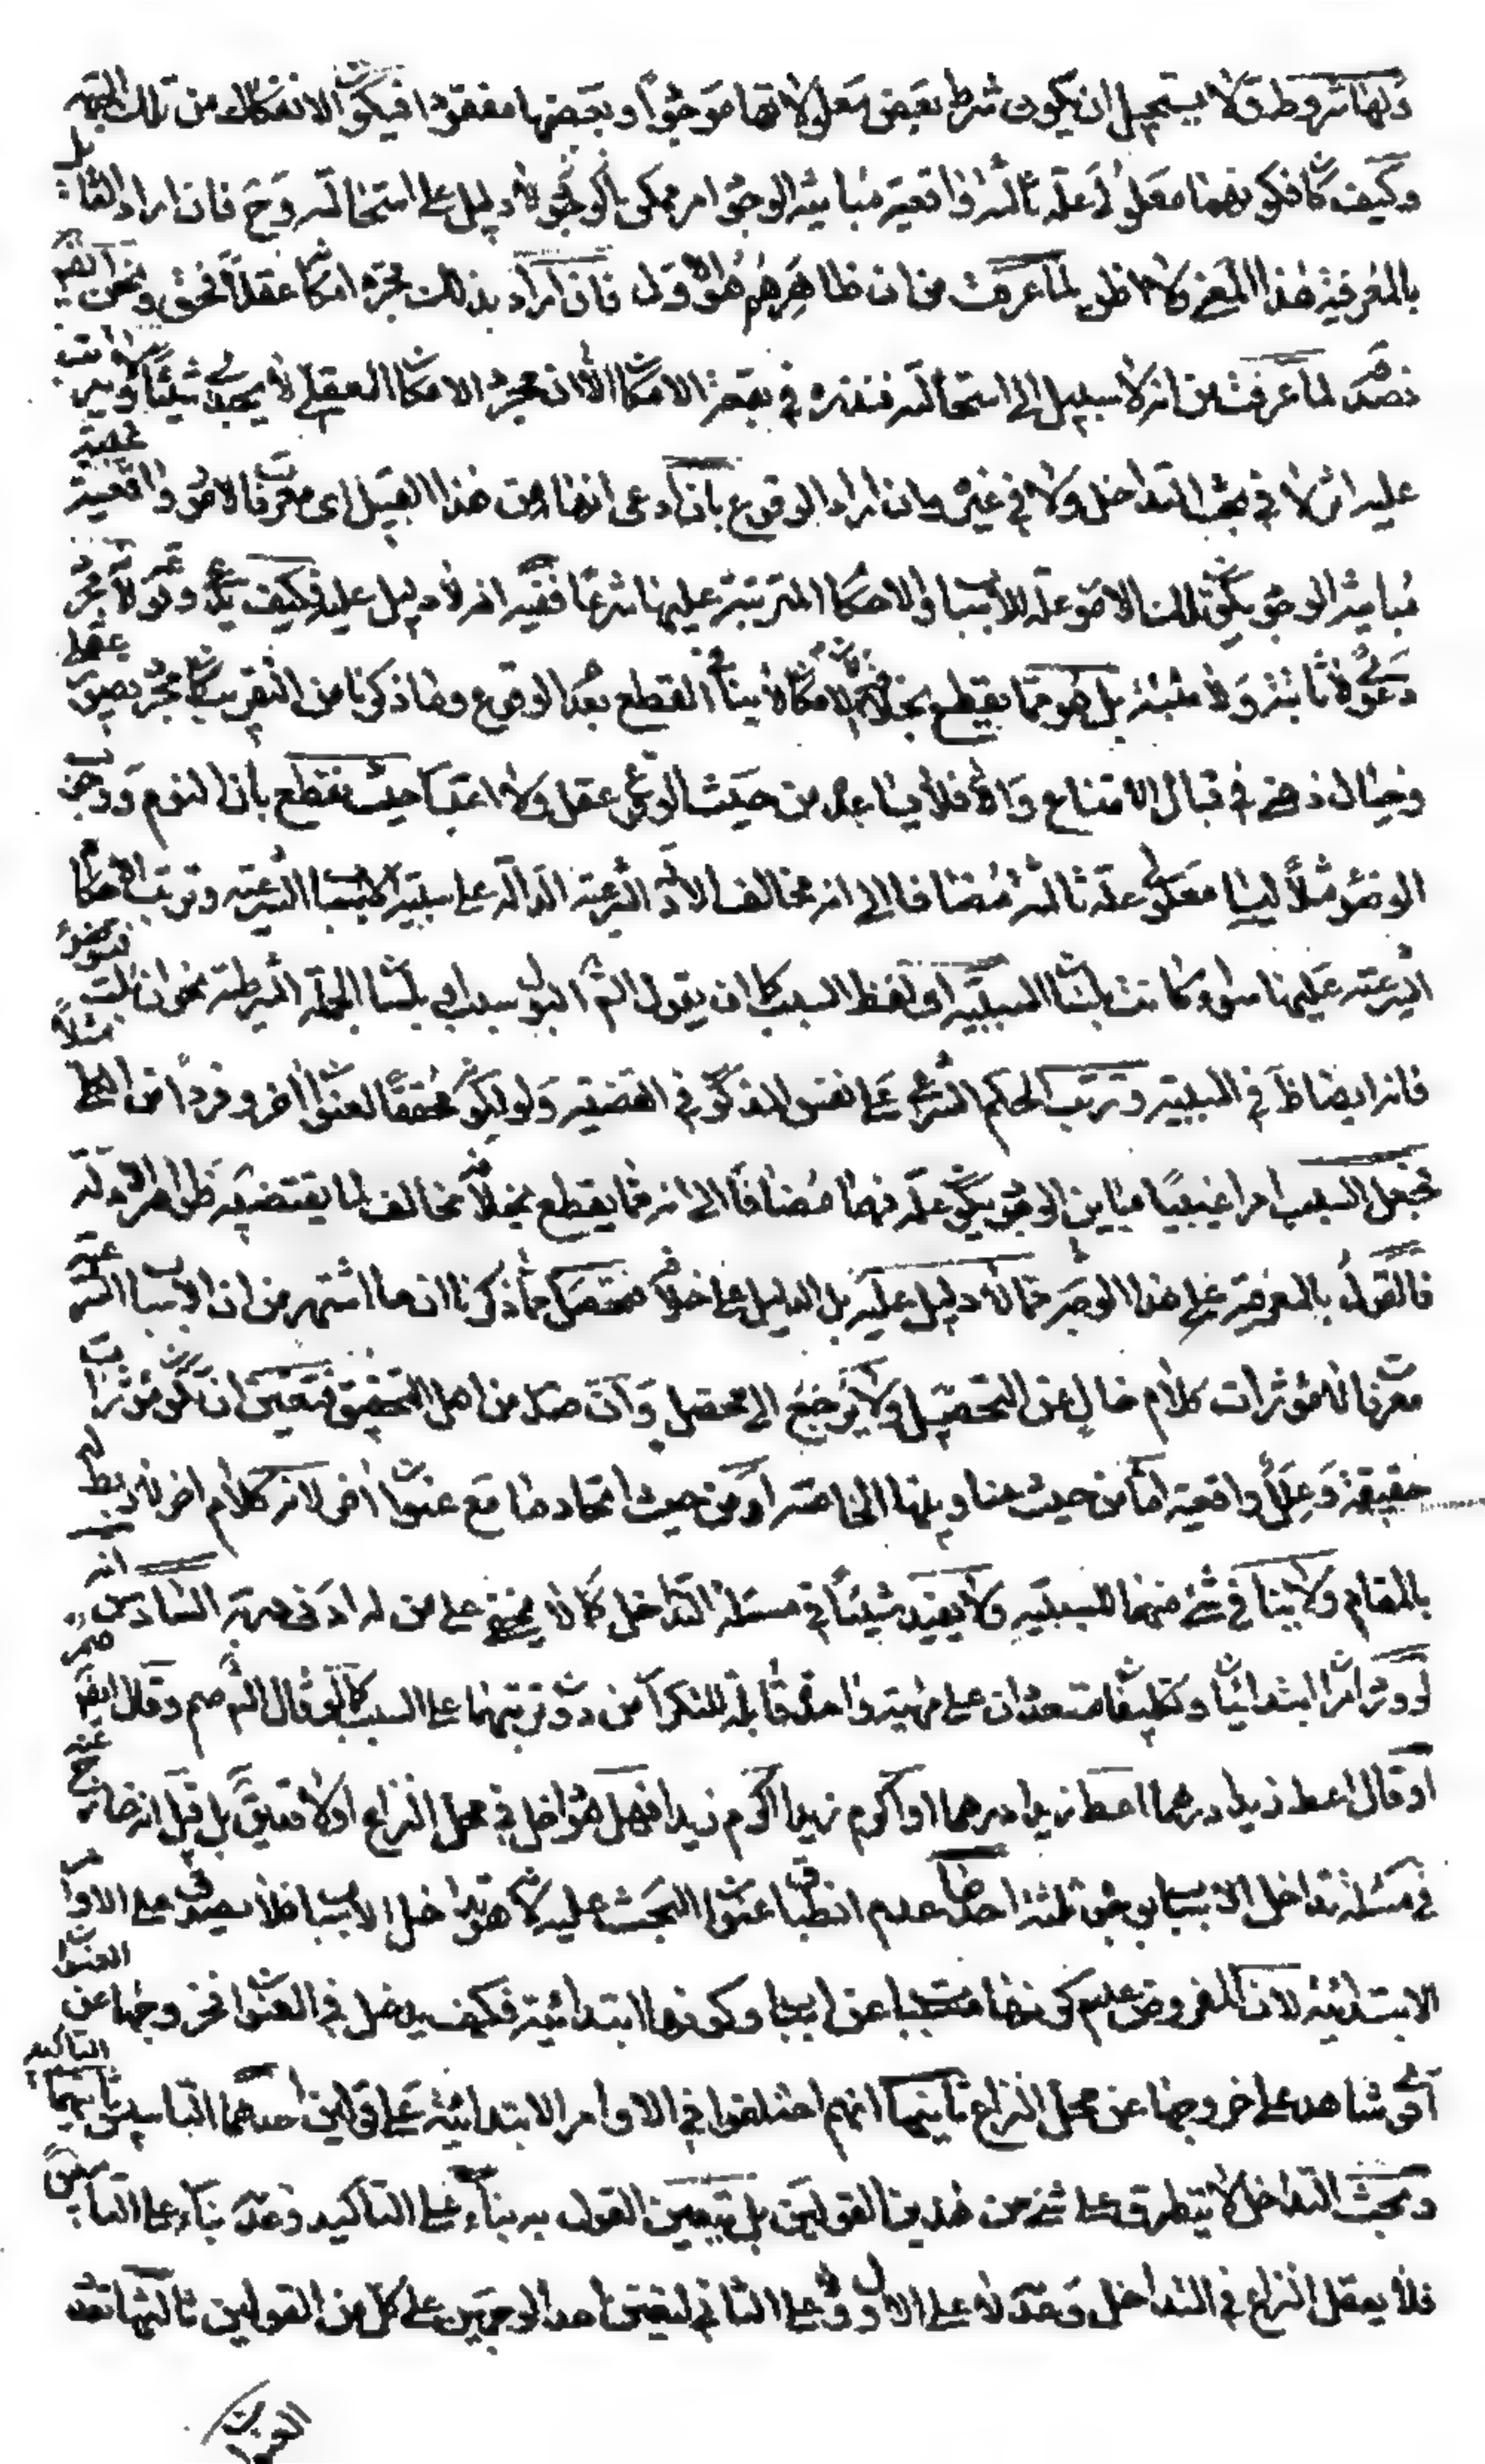 ولها شروط ولا يستحيل ان يكون شرط بعض معلولاتها موجودا وبعضها مفقودا فيكون الانفكاك من تلك الجهة
وكيف كان فكونهما معلولى علة ثالثة واقعية مباينة الوجود امر ممكن بالوجود لا دليل على استحالته وح فان اراد القائل
بالمعرفية هذا المعنى ولا اظن لما عرفت من ان ظاهرهم هو الاول فان اراد بذلك مجرد امكانه عقلا فحق ونحن ايضا
نصدقه لما عرفت من انه لا سبيل الى استحالته فنذره في بقعة الامكان الا ان مجرد الامكان العقلى لا يجدى شيئا ولا يترتب
عليه اثر لا في بحث التداخل ولا في غيره وان اراد الوقوع بان ادعى انها من هذا القبيل اى معرفات لامور واقعية غيبية
مباينة الوجود يكون تلك الامور علة للاسباب والاحكام المترتبة عليها شرعا ففيه انه لا دليل عليه فكيف يدعى ولا مجرد
دعوى لا ثابتة ولا مثبتة بل هو مما يقطع بخلافه اذ الامكان لا ينافى القطع بعد الوقوع وما ذكرنا من التقريب كان مجرد تصوير عقلى
وخيال ذهنى في قبال الامتناع والا فلا يساعده من حيث الوقوع عقل ولا اعتبار حيث نقطع بان النوم ووجوب
الوضوء مثلا ليسا معلولى علة ثالثة مضافا الى انه مخالف الادلة الشرعية الدالة على سببية الاسباب الشرعية وترتب الاحكام
الشرعية عليها سواء كانت بلسان السببية او لفظ السبب كان يقول الشارع البول سبب او بلسان الجملة الشرطية نحو ان بلت فتوضأ مثلا
فانه ايضا ظ في السببية وترتب الحكم الشرعى على نفس المذكور في القضية ولو ليكون محققا لعنوان اخر وفردا من
فجعل السبب امرا غيبيا مباين الوجود يكون علة لهما مضافا الى انه مما يقطع بخلافه مخالف لما يقتضيه ظواهر الادلة
فالقول بالمعرفية على هذا الوجه مما لا دليل عليه بل الدليل على خلافه فتحصل مما ذكرنا ان ما اشتهر من ان الاسباب الشرعية
معرفات لا مؤثرات كلام خال عن التحصيل ولا يرجع الى محصل وان صدر من اهل التحقيق فتعين ان تكون مؤثرات
حقيقة وعللا واقعية اما من حيث عناوينها الخاصة او من حيث اتحادها مع عنوان اخر لانه كلام اخر لا ربط له
بالمقام ولا ينافى شئ منهما للسببية ولا يفيد شيئا في مسئلة التداخل كما لا يخفى على من له ادنى دربة السادس انه
لو ورد امران ابتدائيان وتكليفان متعددان على مهية واحدة قابلة للتكرار من دون ترتبهما على السبب كما لو قال الشارع صم وقال ايضا صم
او قال اعط زيدا درهما اعط زيدا درهما او اكرم زيدا اكرم زيدا فهل هو داخل في محل النزاع اولا فتعين بل قيل انه خارج عنه
في مسئلة تداخل الاسباب بوجوه ثلثة احدها عدم انطباق عنوان البحث عليه لانه هو تداخل الاسباب فلا يصدق على الاوامر
الابتدائية لان المفروض عدم كونها مسببا عن ايجاب وكونها ابتدائية فكيف يدخل في العنوان فخروجها عن العنوان
اقوى شاهد على خروجها عن محل النزاع ثانيها انهم اختلفوا في الاوامر الابتدائية على قولين احدهما التاسيس ثانيهما التاكيد
وبحث التداخل لا يتطرق على شئ من هذين القولين بل تتعين القول به بناء على التاكيد وعدمه بناء على التاسيس
فلا يعقل النزاع في التداخل وعدمه لا على الاول ولا على الثانى لتعين احد الوجهين على كل من القولين ثالثها تعدد